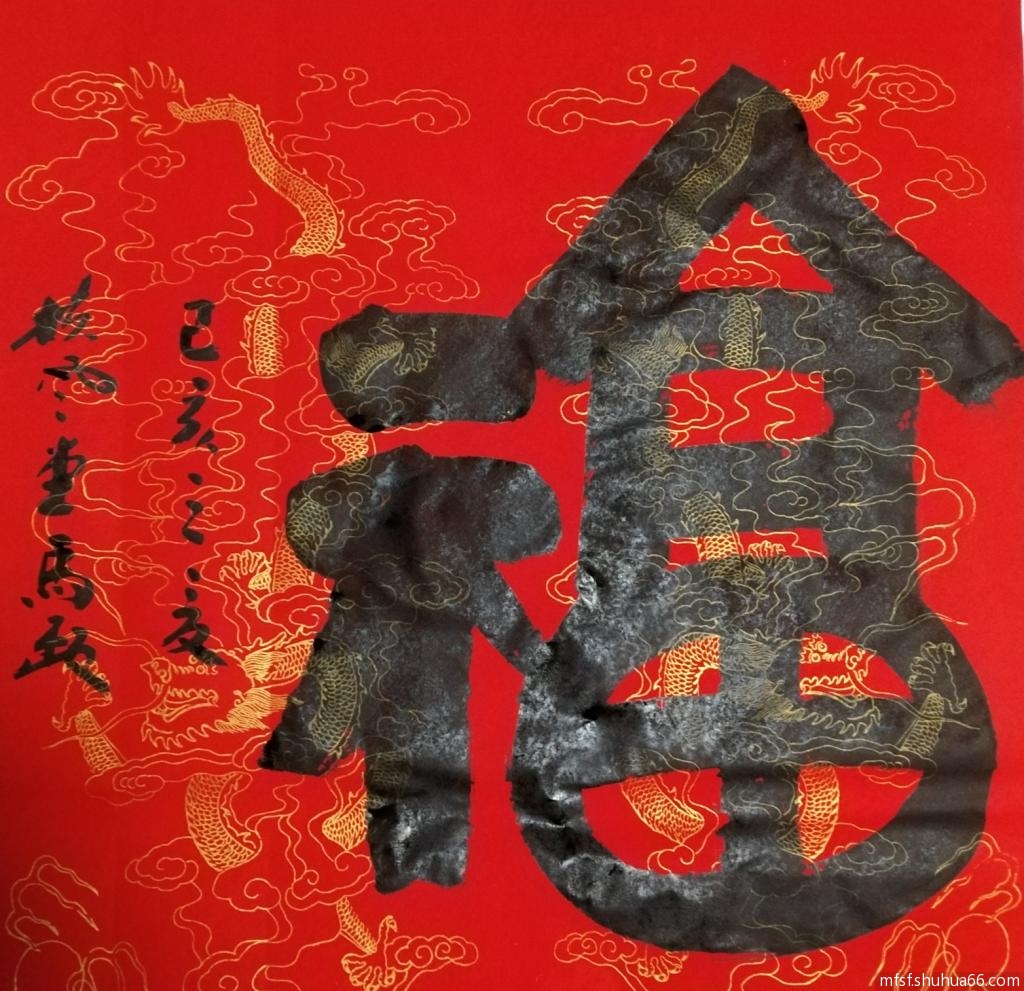 福
己亥之夏
雨堂馬
mfsf.shuhua66.com